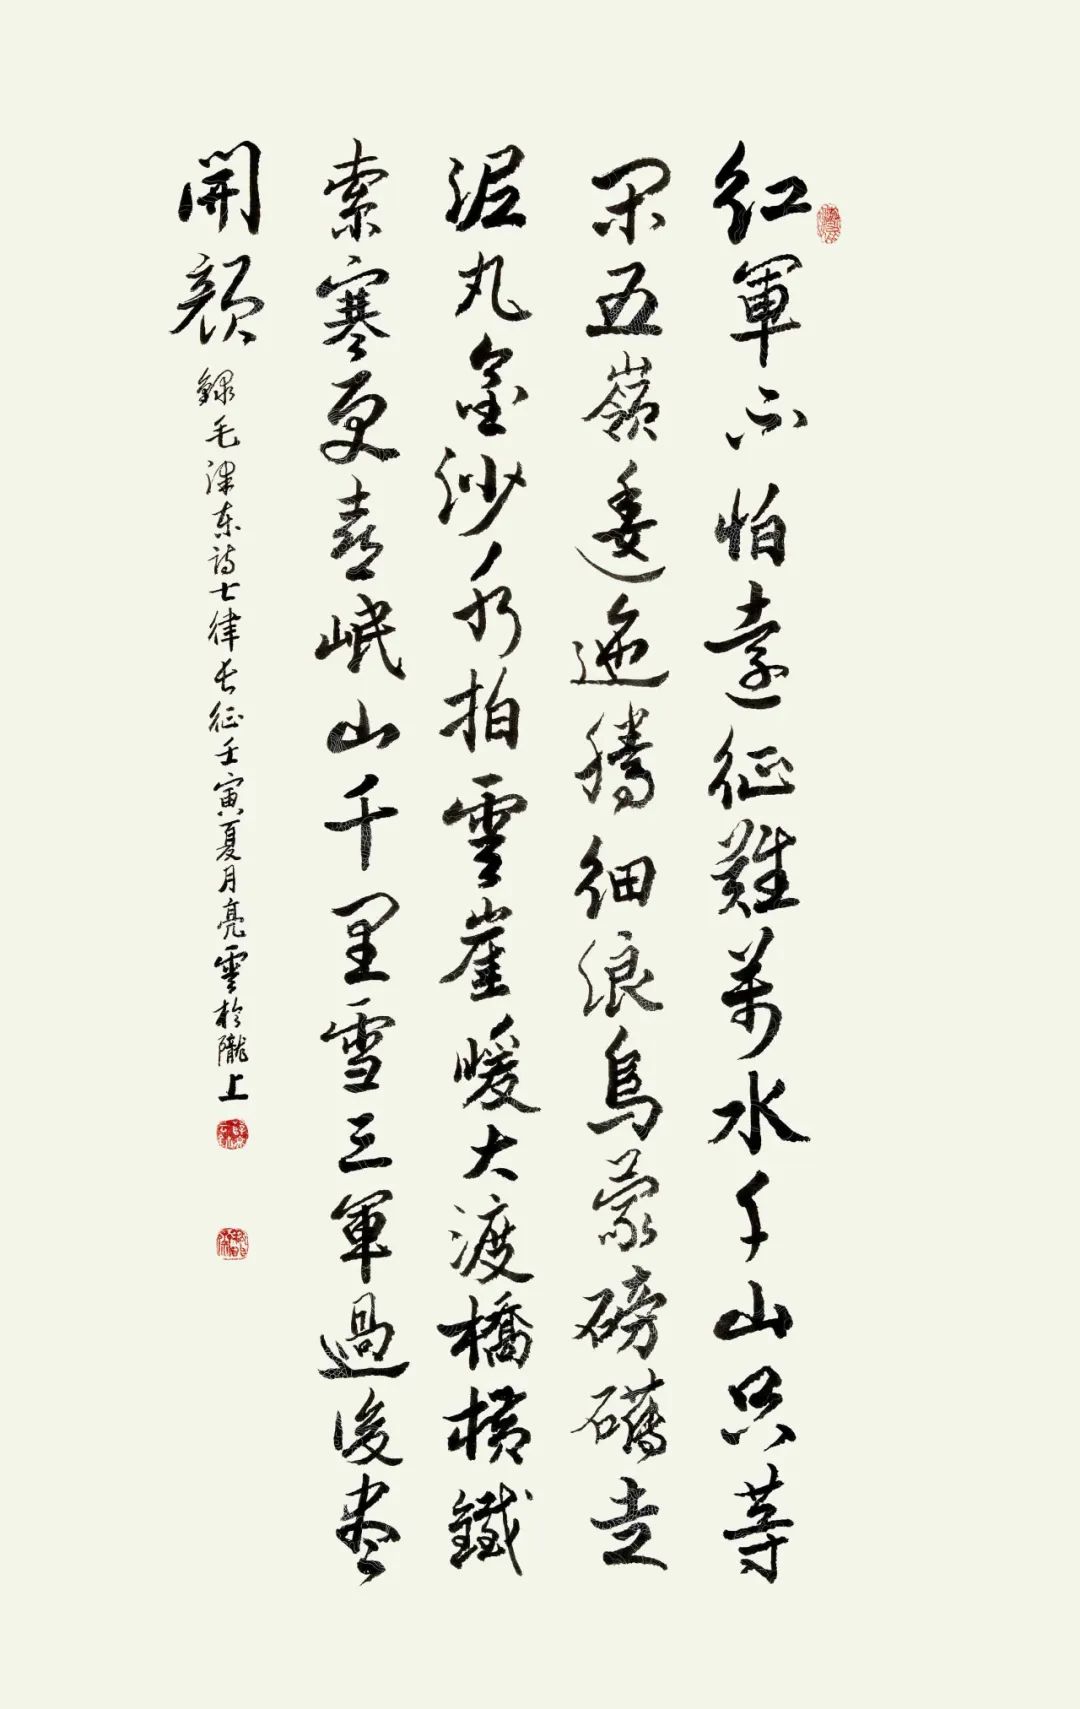 紅軍不怕遠征難萬水千山只等
閑五嶺逶迤騰細浪烏蒙磅礴走
泥丸金沙水拍雲崖暖大渡橋橫鐵
索寒更喜岷山千里雪三軍過後盡
開顏
錄毛澤东詩七律长征壬寅夏月亮雲於隴上